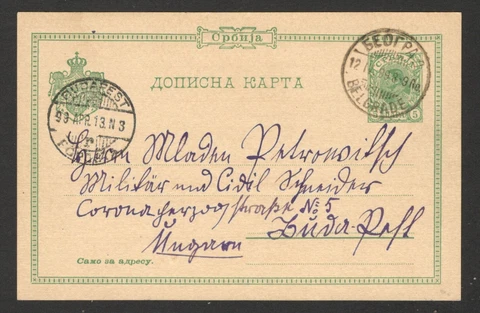 Србија
ДОПИСНА КАРТА
БЕОГРАД
BELGRADE
5
BUDAPEST
99 APR. 13. N 3
Herrn Mladen Petrowitsch
Militär und Civil Schneider
Coronaherzogstraße № 5
Buda-Pest
Ungarn
Само за адресу.